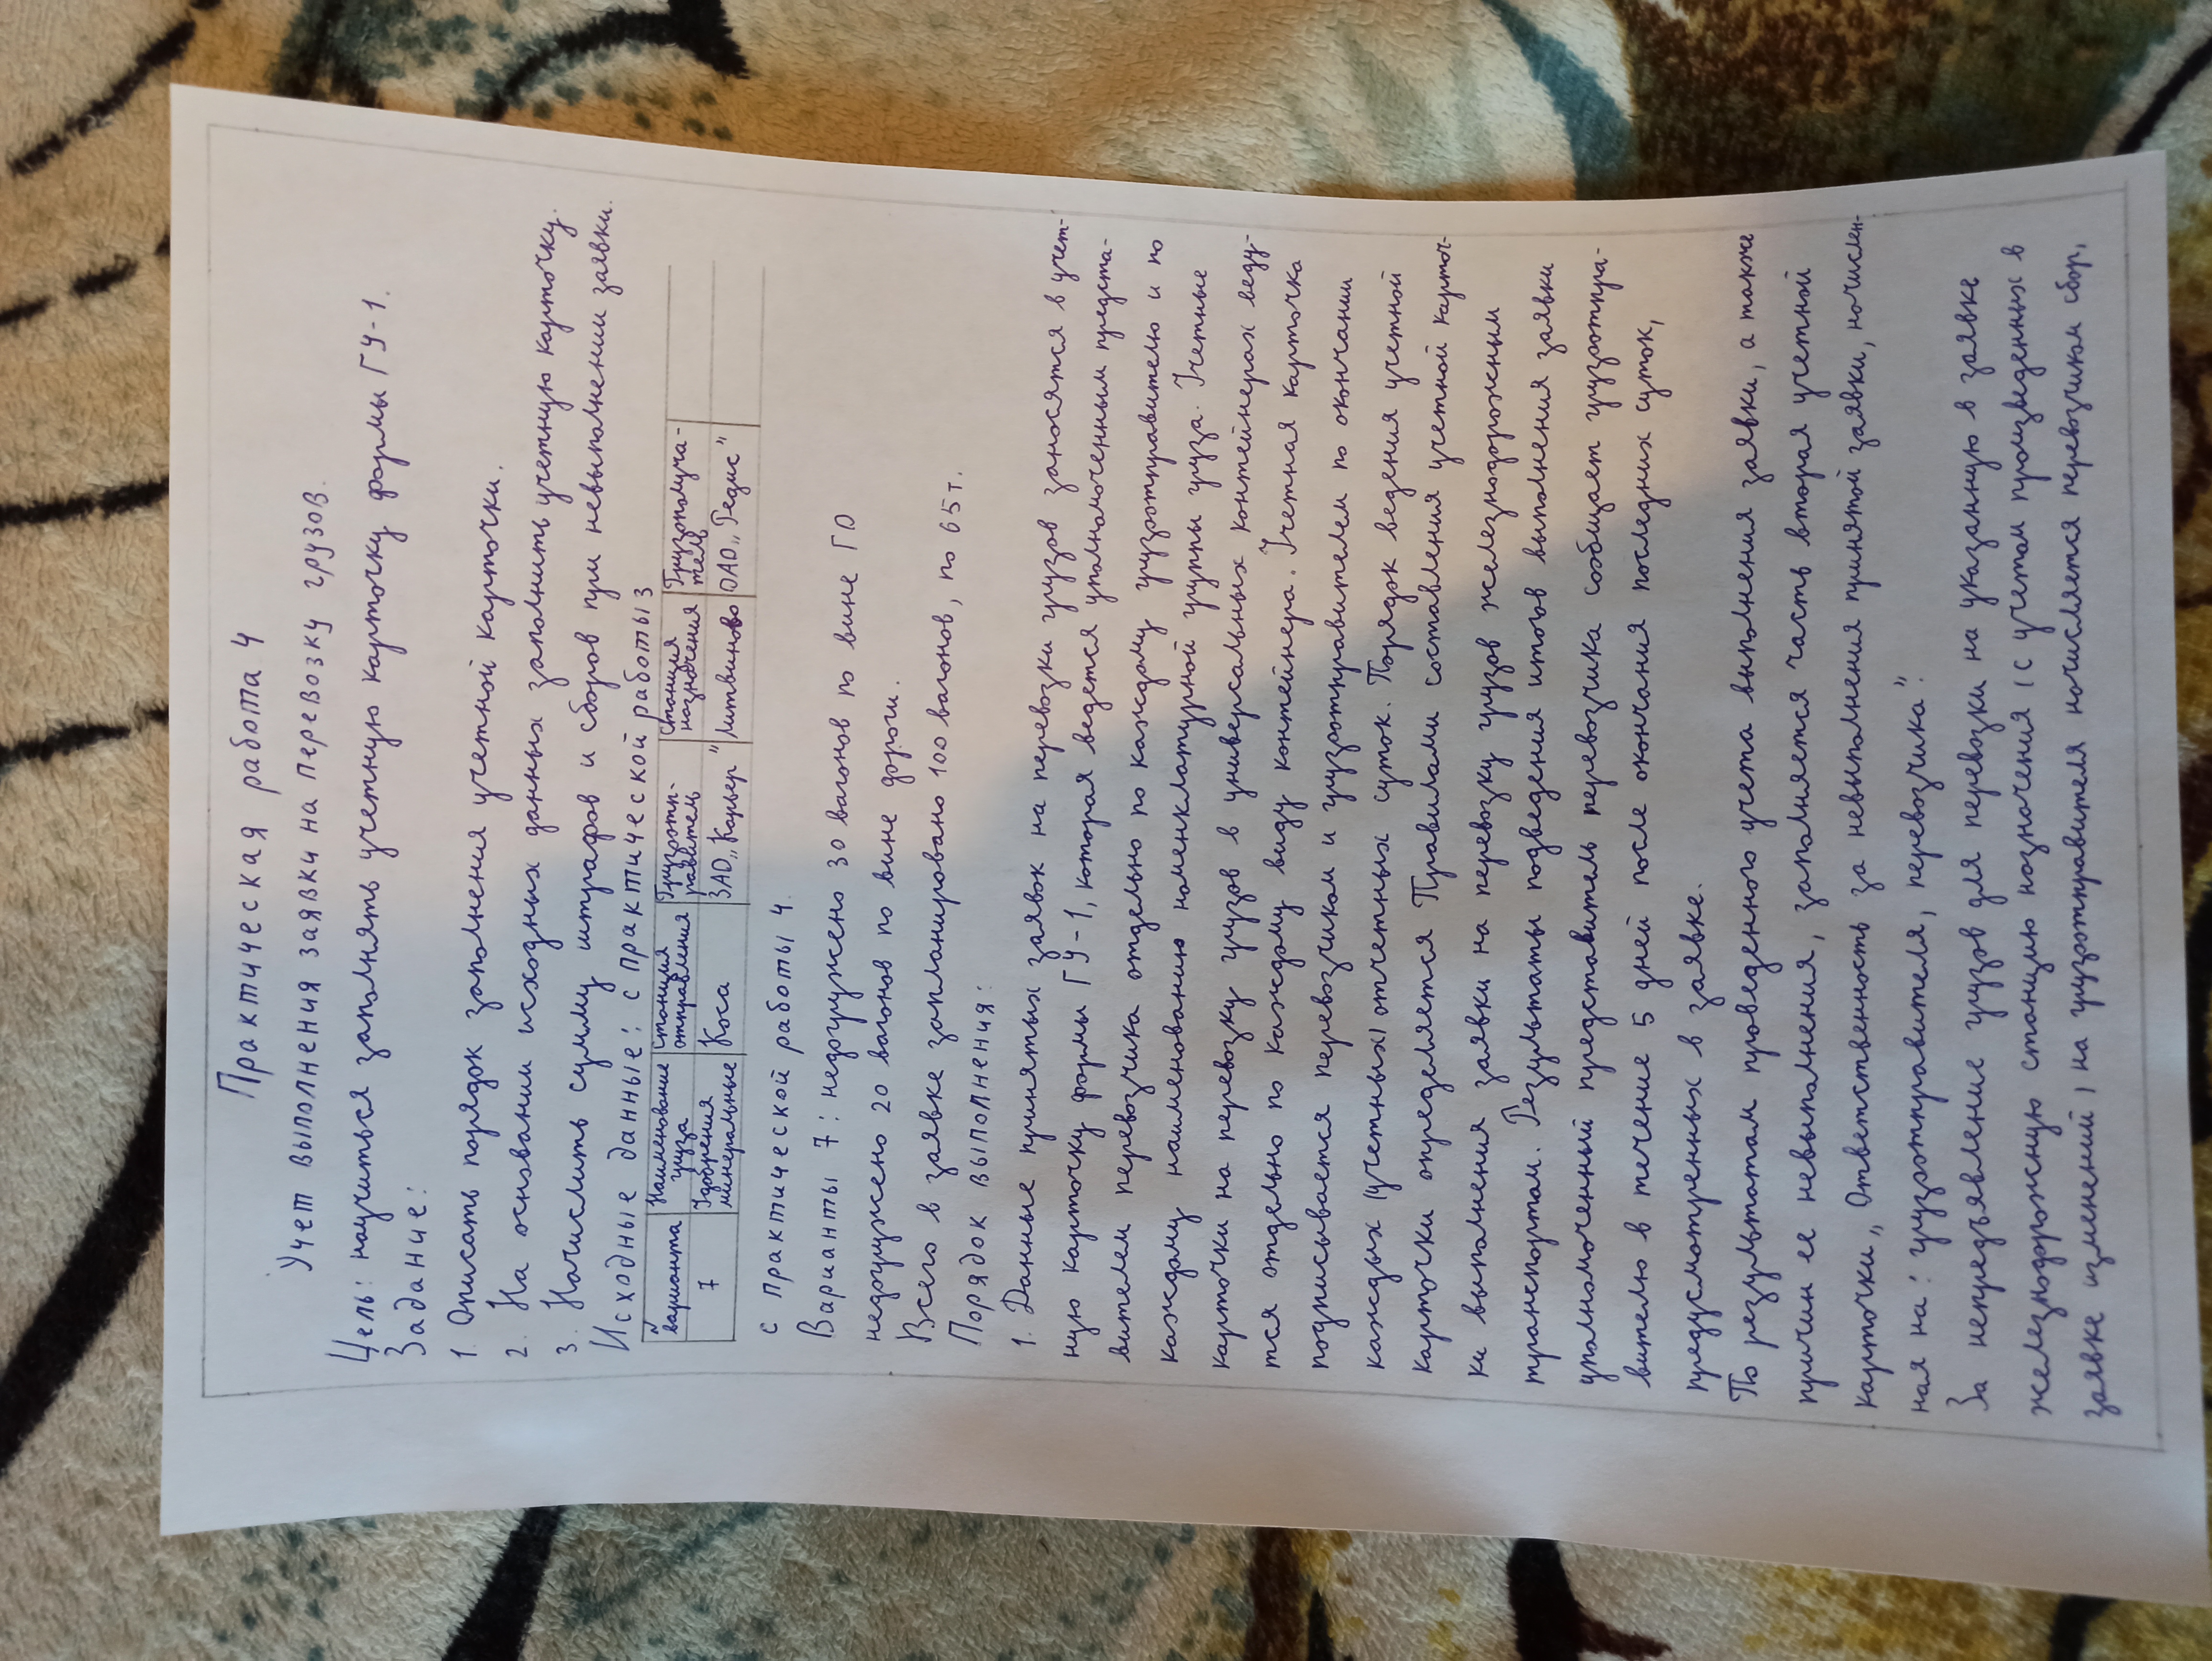 Практическая работа 4
Учет выполнения заявки на перевозку грузов.
Цель: научиться заполнять учетную карточку формы ГУ-1.
Задание:
1. Описать порядок заполнения учетной карточки.
2. На основании исходных данных заполнить учетную карточку.
3. Начислить сумму штрафов и сборов при невыполнении заявки.
Исходные данные: с практической работы 3
варианта Наименование груза Станция отправления Грузоотп-равитель Станция назначения Грузополуча-тель
7 Удобрения минеральные Коса ЗАО „Карьер" Литвиново ОАО „Редис"
с практической работы 4.
Варианты 7: недогружено 30 вагонов по вине ГО
недогружено 20 вагонов по вине дороги.
Всего в заявке запланировано 100 вагонов, по 65 т.
Порядок выполнения:
1. Данные принятых заявок на перевозки грузов заносятся в учет-
ную карточку формы ГУ-1, которая ведется уполномоченным предста-
вителем перевозчика отдельно по каждому грузоотправителю и по
каждому наименованию номенклатурной группы груза. Учетные
карточки на перевозку грузов в универсальных контейнерах веду-
тся отдельно по каждому виду контейнера. Учетная карточка
подписывается перевозчиком и грузоотправителем по окончании
каждых (учетных) отчетных суток. Порядок ведения учетной
карточки определяется Правилами составления учетной карточ-
ки выполнения заявки на перевозку грузов железнодорожным
транспортом. Результаты подведения итогов выполнения заявки
уполномоченный представитель перевозчика сообщает грузоотпра-
вителю в течение 5 дней после окончания последних суток,
предусмотренных в заявке.
По результатам проведенного учета выполнения заявки, а также
причин ее невыполнения, заполняется часть вторая учетной
карточки „Ответственность за невыполнения принятой заявки, начислен-
ная на: грузоотправителя, перевозчика".
За непредъявление грузов для перевозки на указанную в заявке
железнодорожную станцию назначения (с учетом произведенных в
заявке изменений) на грузоотправителя начисляется перевозчиком сбор,